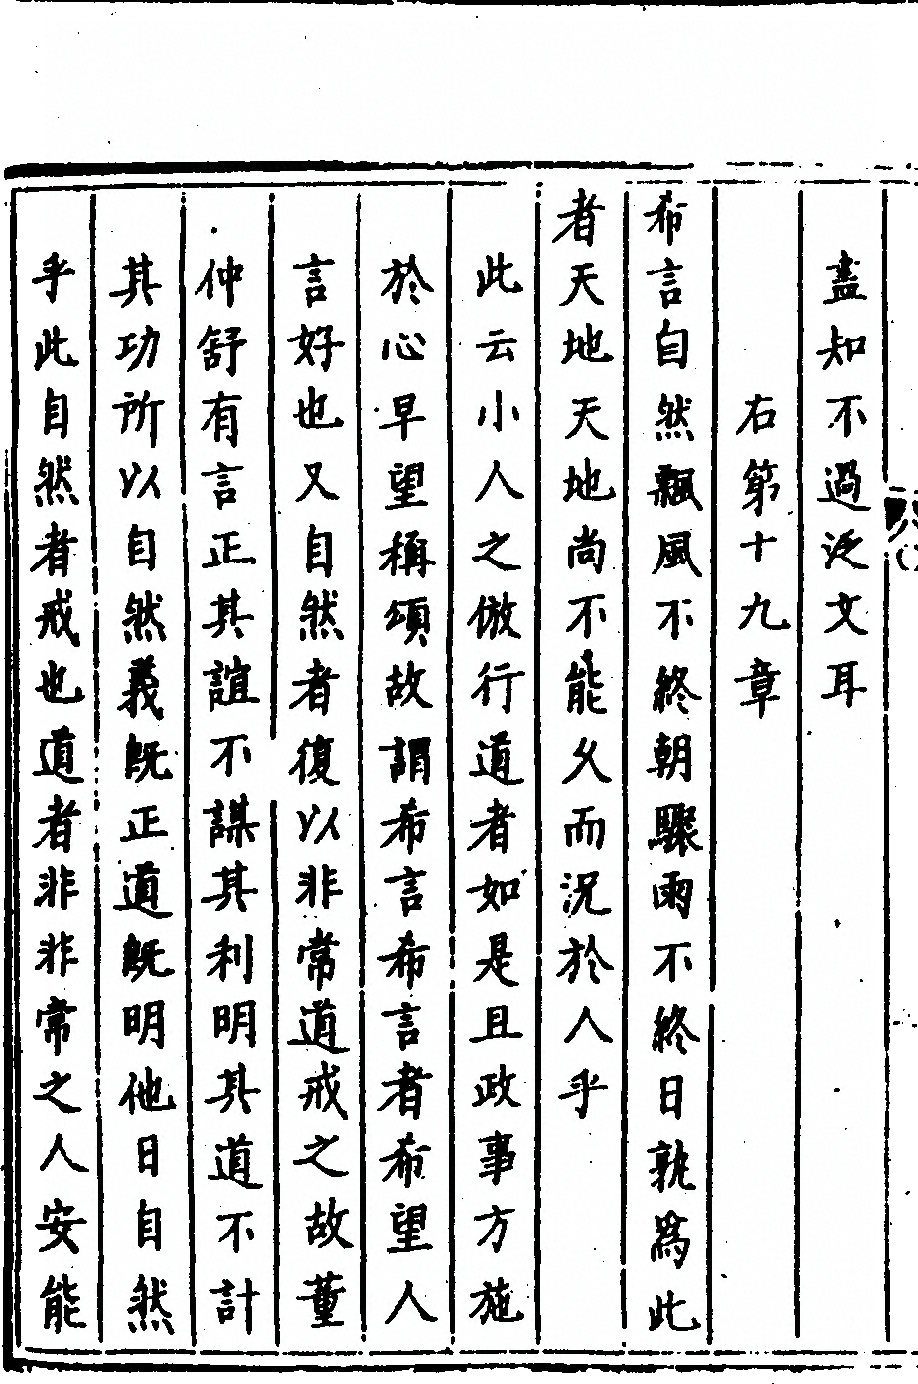 盡知不過泛文耳
右第十九章
希言自然飄風不終朝驟雨不終日孰爲此
者天地天地尚不能久而況於人乎
此云小人之倣行道者如是且政事方施
於心早望稱頌故謂希言希言者希望人
言好也又自然者復以非常道戒之故董
仲舒有言正其誼不謀其利明其道不計
其功所以自然義既正道既明他日自然
乎此自然者戒也道者非非常之人安能